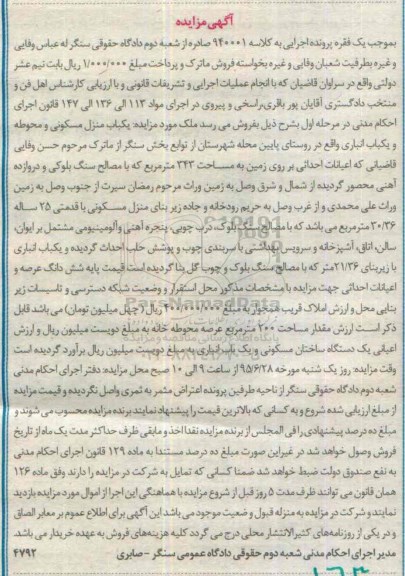 آگهی مزایده
بموجب یک فقره پرونده اجرایی به کلاسه ۹۴۰۰۰۱ صادره از شعبه دوم دادگاه حقوقی سنگر له عباس وفایی
و غیره بطرفیت شعبان وفایی و غیره بخواسته فروش ماترک و پرداخت مبلغ ۱/۰۰۰/۰۰۰ ریال بابت نیم عشر
دولتی واقع در سراوان قاضیان که با انجام عملیات اجرایی و تشریفات قانونی و با ارزیابی کارشناس اهل فن و
منتخب دادگستری آقایان پور باقری، راسخی و پیروی در اجرای مواد ۱۱۳ الی ۱۳۶ الی ۱۴۷ قانون اجرای
احکام مدنی در مرحله اول بشرح ذیل بفروش می رسد ملک مورد مزایده: یکباب منزل مسکونی و محوطه
و یکباب انباری واقع در روستای پایین محله شهرستان از توابع بخش سنگر از ماترک مرحوم حسن وفایی
قاضیانی که اعیانات احداثی بر روی زمین به مساحت ۳۴۳ مترمربع که با مصالح سنگ بلوکی و دروازده
آهنی محصور گردیده از شمال و شرق وصل به زمین وراث مرحوم رمضان سیرت از جنوب وصل به زمین
وراث علی محمدی و از غرب وصل به حریم رودخانه و جاده زیر بنای منزل مسکونی با قدمتی ۲۵ ساله
۳۰/۳۶ مترمربع می باشد که با مصالح بلوک، درب چوبی، پنجره آهنی و آلومینیومی مشتمل بر ایوان،
سالن، اتاق، آشپزخانه و سرویس بهداشتی با سربندی چوب و پوشش حلب احداث گردیده و یکباب انباری
با زیربنای ۲۱/۳۶ متر که با مصالح سنگ بلوک و چوب گل بنا گردیده است قیمت پایه شش دانگ عرصه و
اعیانات احداثی جهت مزایده با مشخصات مذکور محل استقرار و وضعیت شبکه دسترسی و تاسیسات زیر
بنایی محل و ارزش املاک قریب همجوار به مبلغ ۴۰۰/۰۰۰/۰۰۰ ریال (چهل میلیون تومان) می باشد قابل
ذکر است ارزش مقدار مساحت ۲۰۰ مترمربع عرصه محوطه خانه به مبلغ دویست میلیون ریال و ارزش
اعیانی یک دستگاه ساختان مسکونی و یک باب انباری به مبلغ دویست میلیون ریال برآورد گردیده است
وقت مزایده: روز یک شنبه مورخه ۹۵/۶/۲۸ از ساعت ۹ الی ۱۰ صبح محل مزایده: دفتر اجرای احکام مدنی
شعبه دوم دادگاه حقوقی سنگر از ناحیه طرفین پرونده اعتراض مثمر به ثمری واصل نگردیده و قیمت مزایده
از مبلغ ارزیابی شده شروع و به کسانی که بالاترین قیمت را پیشنهاد نمایند برنده مزایده محسوب می شوند و
مبلغ ده درصد پیشنهادی را فی المجلس از برنده مزایده نقدا اخذ و مابقی ظرف حداکثر مدت یک ماه از تاریخ
فروش وصول خواهد شد در غیر این صورت مبلغ ده درصد مستندا به ماده ۱۲۹ قانون اجرای احکام مدنی
به نفع صندوق دولت ضبط خواهد شد ضمنا کسانی که تمایل به شرکت در مزایده را دارند وفق ماده ۱۲۶
همان قانون می توانند ظرف مدت ۵ روز قبل از شروع مزایده با هماهنگی این اجرا از اموال مورد مزایده بازدید
نمایند و شرکت در مزایده به منزله قبول و ضعیت موجود می باشد این آگهی برای اطلاع عموم بر معابر الصاق
و در یکی از روزنامه‌های کثیرالانتشار محلی درج می گردد کلیه هزینه‌های فروش به عهده خریدار می باشد
مدیر اجرای احکام مدنی شعبه دوم حقوقی دادگاه عمومی سنگر - صابری ۴۷۹۲